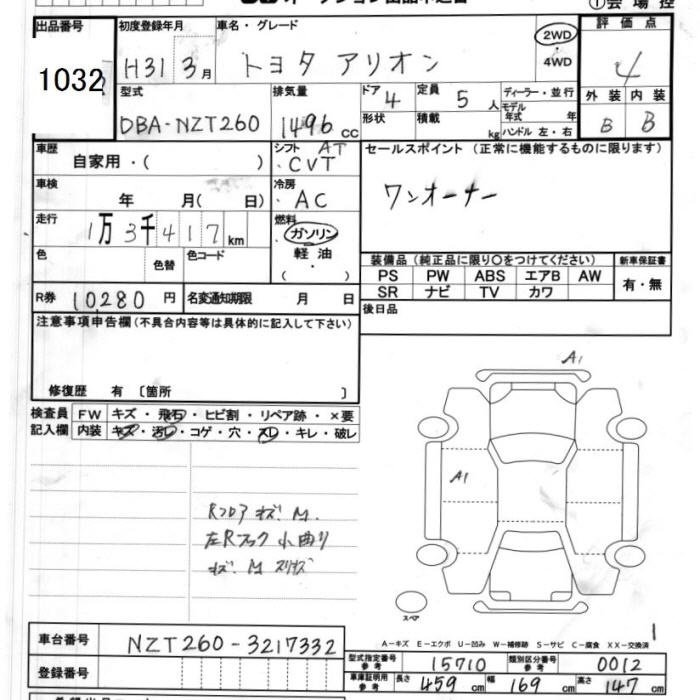 会場控
出品番号 初度登録年月 車名・グレード 評価点
1032 H31 3月 トヨタ アリオン 2WD ・ 4WD 4
型式 排気量 ドア 4 定員 5人 ディーラー・並行 外装 内装
DBA-NZT260 1496 cc 形状 積載 kg モデル年式 年式 B B
ハンドル 左・右
車歴 シフト AT セールスポイント (正常に機能するものに限ります)
自家用・( ) ・CVT
車検 冷房 ワンオーナー
年 月( 日) ・AC
走行 燃料
1万3千417km ガソリン
色 色替 色コード 軽油 装備品(純正品に限り〇をつけてください) 新車保証書
・ PS PW ABS エアB AW 有・無
R券 10,280円 名変通知期限 月 日 SR ナビ TV カワ
注意事項申告欄(不具合内容等は具体的に記入して下さい) 後日品
修復歴 有 〔箇所 〕
検査員 FW キズ・飛石・ヒビ割・リペア跡・×要
記入欄 内装 キズ・汚レ・コゲ・穴・スレ・キレ・破レ
A1
A1
Rフロア キズ M.
左Rフック 小曲り
キズ M スリキズ
スペア
1
A-キズ E-エクボ U-凹み W-補修跡 S-サビ C-腐食 XX-交換済
車台番号 NZT260-3217332
型式指定番号 参考 15710 類別区分番号 参考 0012
登録番号 車庫証明用 参考 長さ 459cm 幅 169cm 高さ 147cm